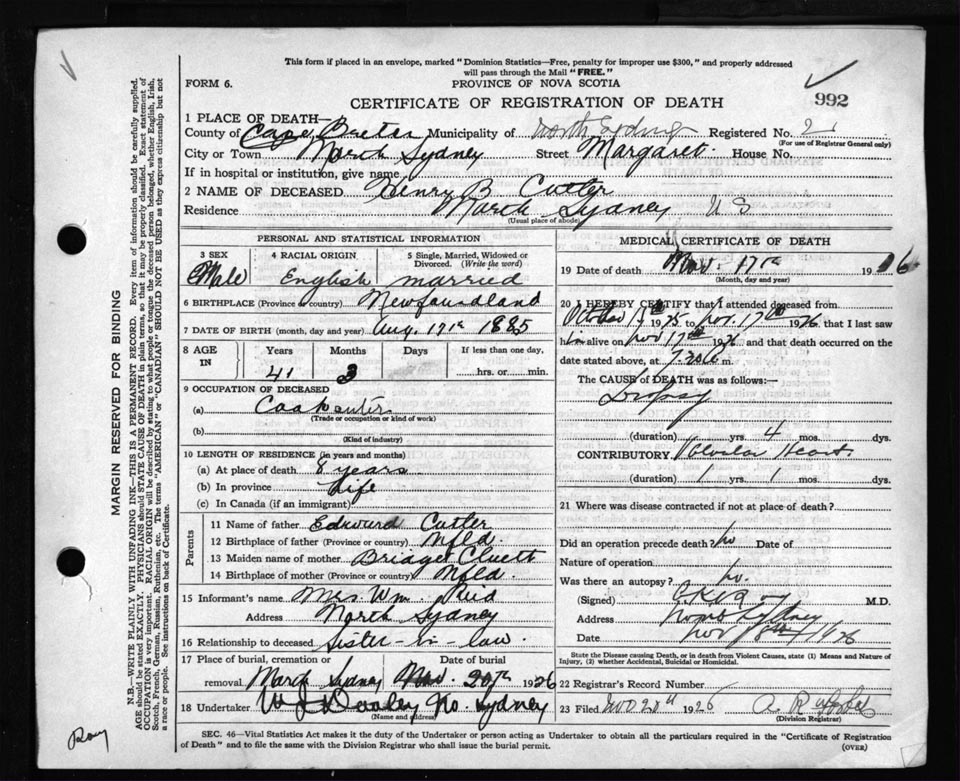 This form if placed in an envelope, marked "Dominion Statistics—Free, penalty for improper use $300," and properly addressed
will pass through the Mail "FREE."
FORM 6.
PROVINCE OF NOVA SCOTIA
992
CERTIFICATE OF REGISTRATION OF DEATH
1 PLACE OF DEATH—
County of Cape Breton Municipality of North Sydney Registered No. 2
(For use of Registrar General only)
City or Town North Sydney Street Margaret House No.
If in hospital or institution, give name
2 NAME OF DECEASED Henry B Cutler
Residence North Sydney
(Usual place of abode)
PERSONAL AND STATISTICAL INFORMATION
3 SEX Male
4 RACIAL ORIGIN English
5 Single, Married, Widowed or Divorced. (Write the word) married
6 BIRTHPLACE (Province or country) Newfoundland
7 DATE OF BIRTH (month, day and year) Aug. 17th 1885
8 AGE IN
Years Months Days If less than one day,
41 3 hrs. or min.
9 OCCUPATION OF DECEASED
(a) Carpenter
(Trade or occupation or kind of work)
(b)
(Kind of industry)
10 LENGTH OF RESIDENCE (in years and months)
(a) At place of death 8 years
(b) In province Life
(c) In Canada (if an immigrant)
Parents
11 Name of father Edward Cutler
12 Birthplace of father (Province or country) Nfld.
13 Maiden name of mother Bridget Cluett
14 Birthplace of mother (Province or country) Nfld.
15 Informant's name Mrs. Wm. Reid
Address North Sydney
16 Relationship to deceased Sister-in-law.
17 Place of burial, cremation or removal North Sydney Date of burial Nov. 20th 1926
18 Undertaker W J Dooley No. Sydney
(Name and address)
MEDICAL CERTIFICATE OF DEATH
19 Date of death Nov. 17th 1926
(Month, day and year)
20 I HEREBY CERTIFY that I attended deceased from
October 1925 to Nov. 17th 1926 that I last saw
him alive on Nov 17th 1926 and that death occurred on the
date stated above, at m.
The CAUSE of DEATH was as follows:—
Dropsy
(duration) yrs. 4 mos. dys.
CONTRIBUTORY. Valvular Heart
(duration) 1 yrs. 1 mos. dys.
21 Where was disease contracted if not at place of death?
Did an operation precede death? no Date of
Nature of operation
Was there an autopsy? no.
(Signed) M.D.
Address North Sydney
Date Nov 18th 1926
State the Disease causing Death, or in death from Violent Causes, state (1) Means and Nature of
Injury, (2) whether Accidental, Suicidal or Homicidal.
22 Registrar's Record Number
23 Filed Nov 20th 1926
(Division Registrar)
SEC. 46—Vital Statistics Act makes it the duty of the Undertaker or person acting as Undertaker to obtain all the particulars required in the "Certificate of Registration
of Death" and to file the same with the Division Registrar who shall issue the burial permit.
(OVER)
MARGIN RESERVED FOR BINDING
N.B.—WRITE PLAINLY WITH UNFADING INK—THIS IS A PERMANENT RECORD. Every item of information should be carefully supplied.
AGE should be stated EXACTLY. PHYSICIANS should STATE CAUSE OF DEATH in plain terms, so that it may be properly classified. Exact statement of
OCCUPATION is very important. RACIAL ORIGIN will be described by stating to what people or tongue the deceased person belonged, whether English, Irish,
Scotch, French, German, Russian, Ruthenian, etc. The terms "AMERICAN" or "CANADIAN" SHOULD NOT BE USED as they express citizenship but not
a race or people. See instructions on back of Certificate.